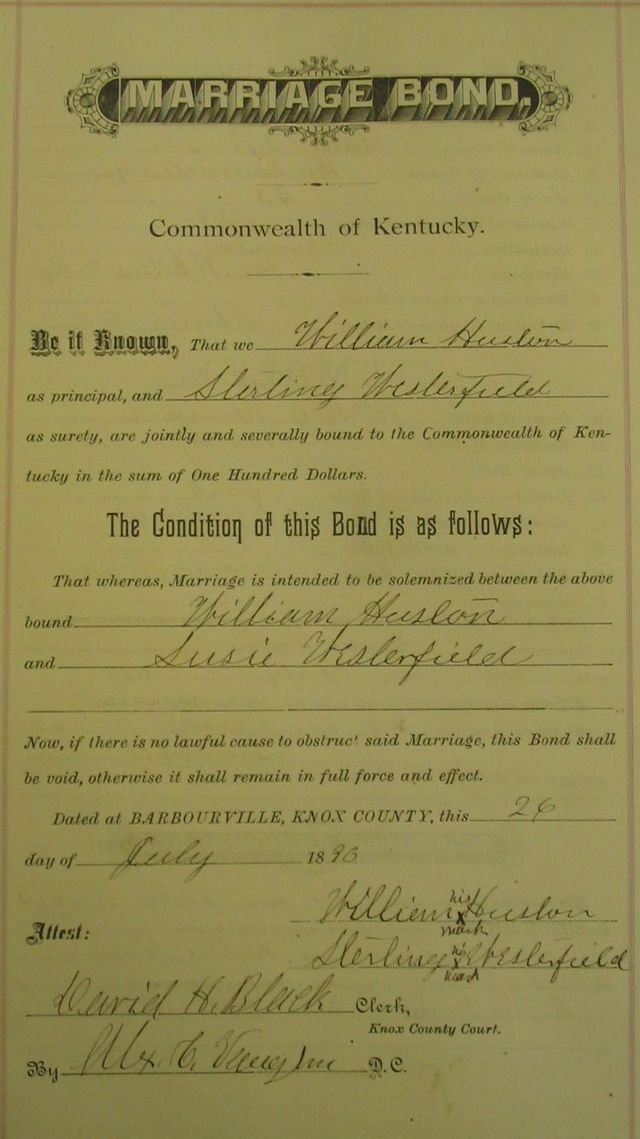 MARRIAGE BOND,
Commonwealth of Kentucky.
Be it Known, That we William Huston
as principal, and Sterling Westerfield
as surety, are jointly and severally bound to the Commonwealth of Ken-
tucky in the sum of One Hundred Dollars.
The Condition of this Bond is as follows:
That whereas, Marriage is intended to be solemnized between the above
bound William Huston
and Susie Westerfield
Now, if there is no lawful cause to obstruct said Marriage, this Bond shall
be void, otherwise it shall remain in full force and effect.
Dated at BARBOURVILLE, KNOX COUNTY, this 26
day of July 1890
William his x mark Huston
Attest:
Sterling his x mark Westerfield
David H. Black Clerk,
Knox County Court.
By C. D. C.